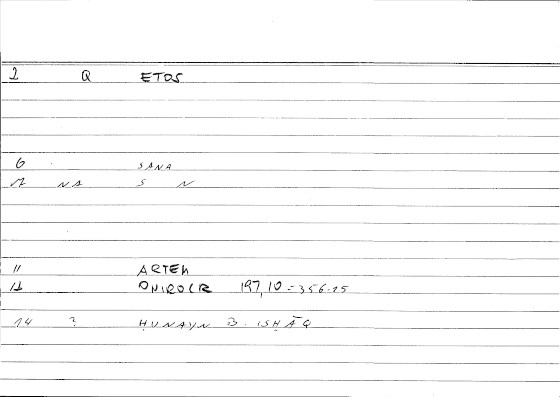 2 Q ETOS
6 SANA
12 NA S N
11 ARTEM
12 ONIROCR 197,10 = 356.15
14 ? ḤUNAYN B. ISḤĀQ